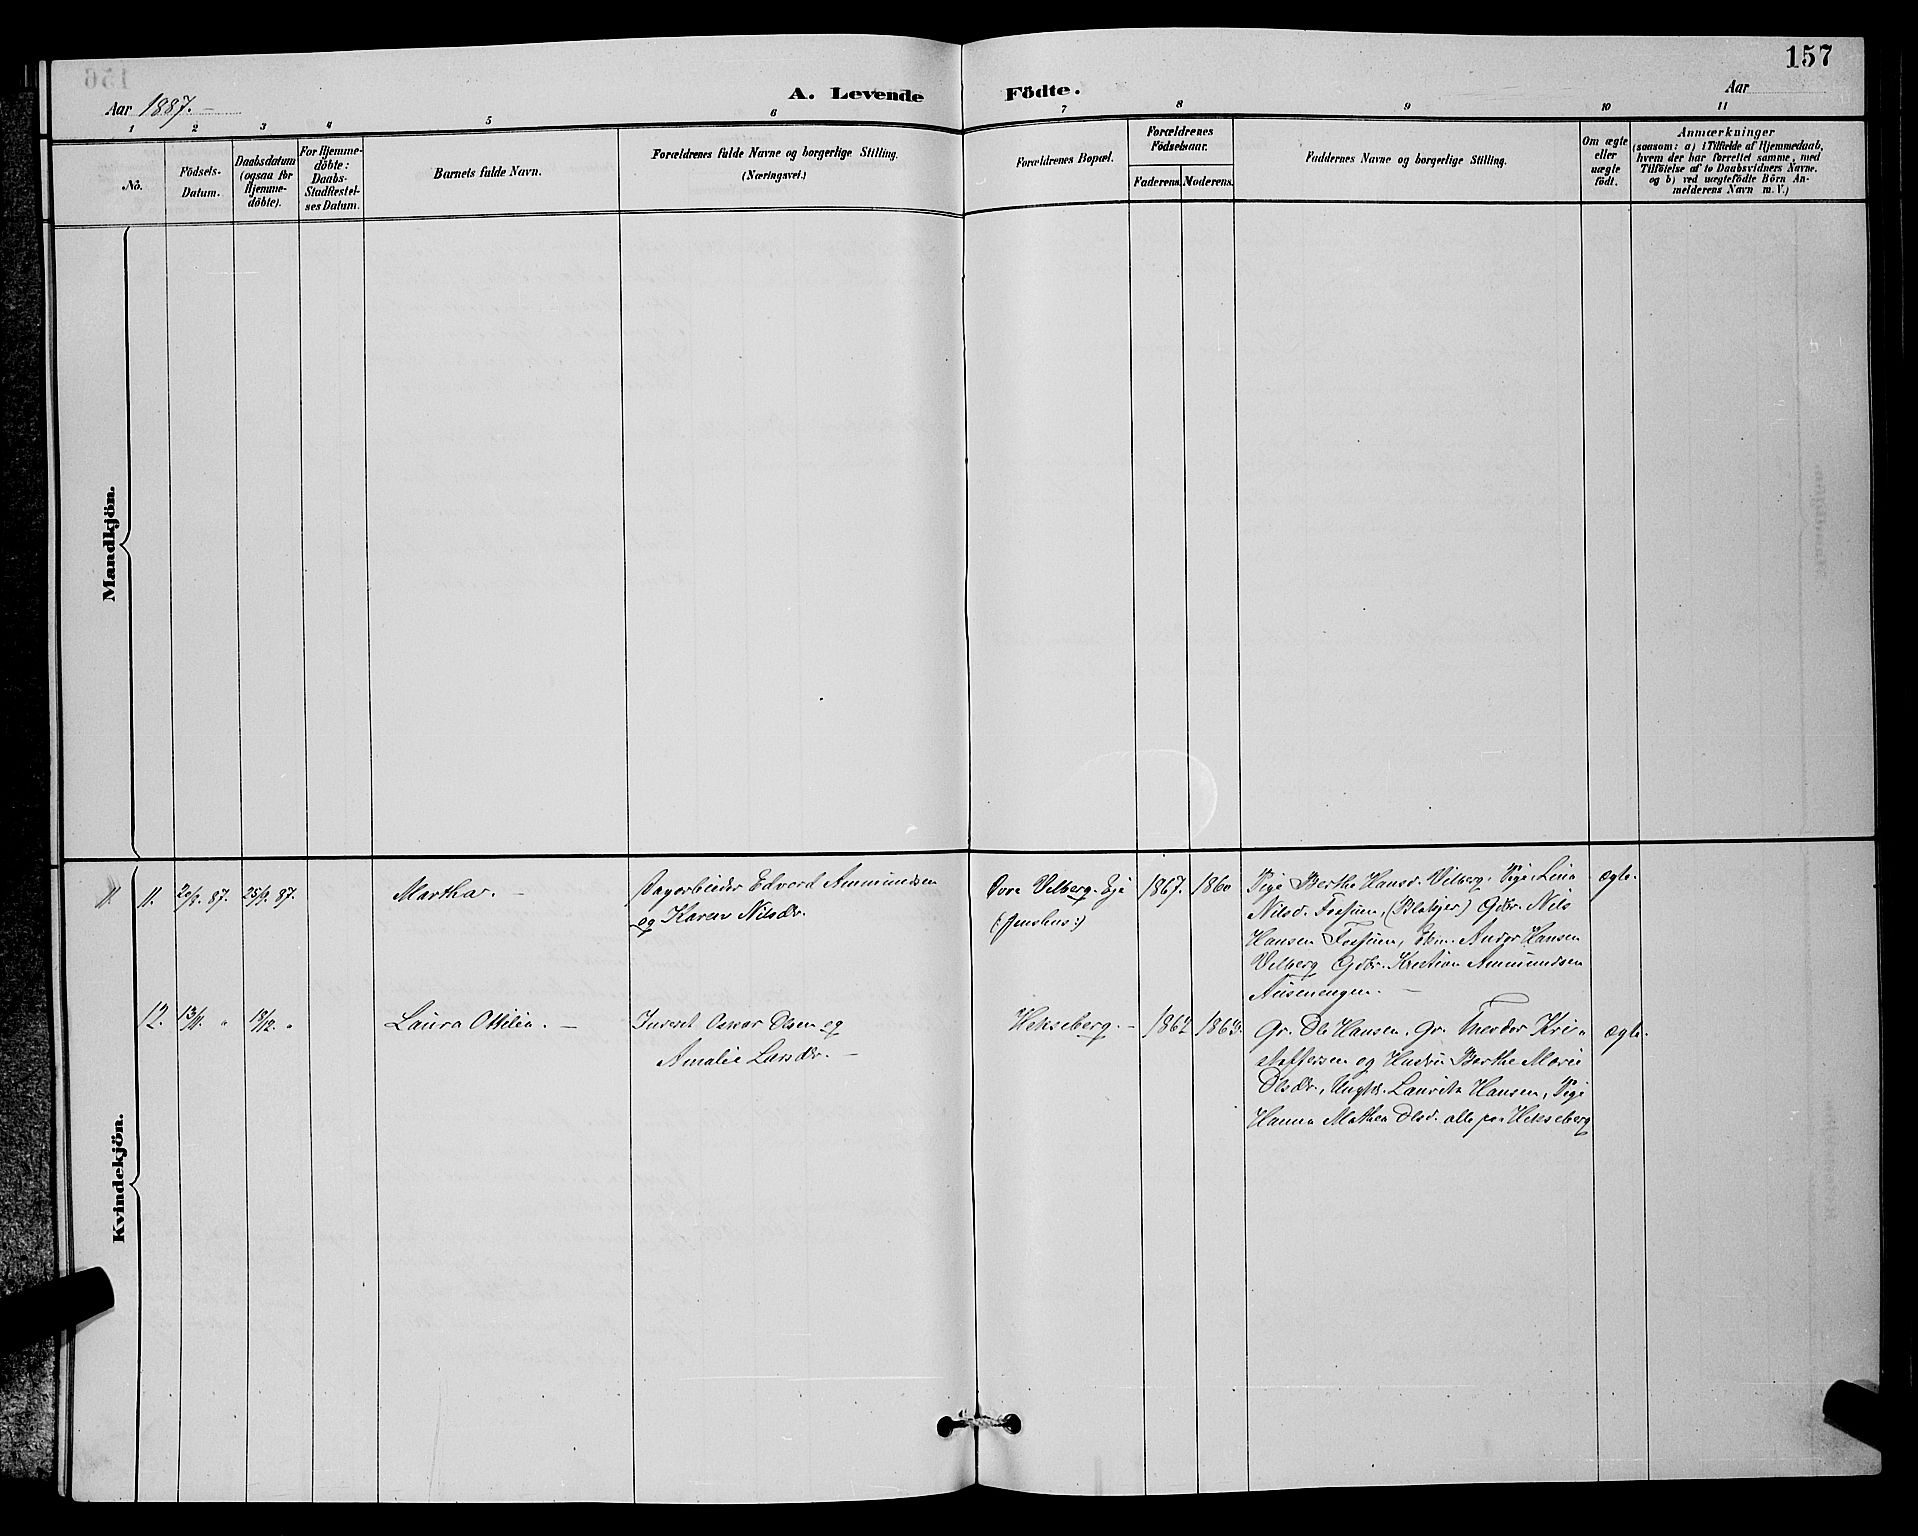 157
Aar 1887.
A. Levende Födte.
Aar
1 2 3 4 5 6 7 8 9 10 11
No.
Födsels-Datum.
Daabsdatum (ogsaa for Hjemme-döbte).
For Hjemme-döbte: Daabs-Stadfæstel-ses Datum.
Barnets fulde Navn.
Forældrenes fulde Navne og borgerlige Stilling.
(Næringsvei.)
Forældrenes Bopæl.
Forældrenes Födselsaar.
Faderens. Moderens.
Faddernes Navne og borgerlige Stilling.
Om ægte eller uægte födt.
Anmærkninger
(saasom: a) i Tilfælde af Hjemmedaab,
hvem der har forrettet samme, med
Tilföielse af to Daabsvidners Navne.
og b) ved uægtefödte Börn An-
melderens Navn m. V.)
Mandkjön.
Kvindekjön.
11. 11. 20/9. 87. 25/9. 87.
Martha. –
Dagarbeider Edvard Ammundsen
og Karen Nilsdr.
Øvre Vilberg. Eje
(: Jenshus:)
1867. 1860
Pige Berthe Hansd. Vilberg, Pige Lina
Nilsd. Fossum, (Blakjer) Gdbr. Nils
Hansen Fossum, Andor Hansen
Vilberg Gdbr. Kristian Ammundsen
Ausenengen. –
ægte.
12. 13/11. " 18/12. "
Laura Ottilia. –
Inderst Oscar Olsen og
Amalie Larsdr. –
Hekseberg. –
1862 1863.
Gr. Ole Hansen, Gr. Theodor Kri-
stoffersen og Hustru Berthe Marie
Olsdr., Ungk. Lauritz Hansen, Pige
Hanna Mathea Olsd. alle paa Hekseberg
ægte.